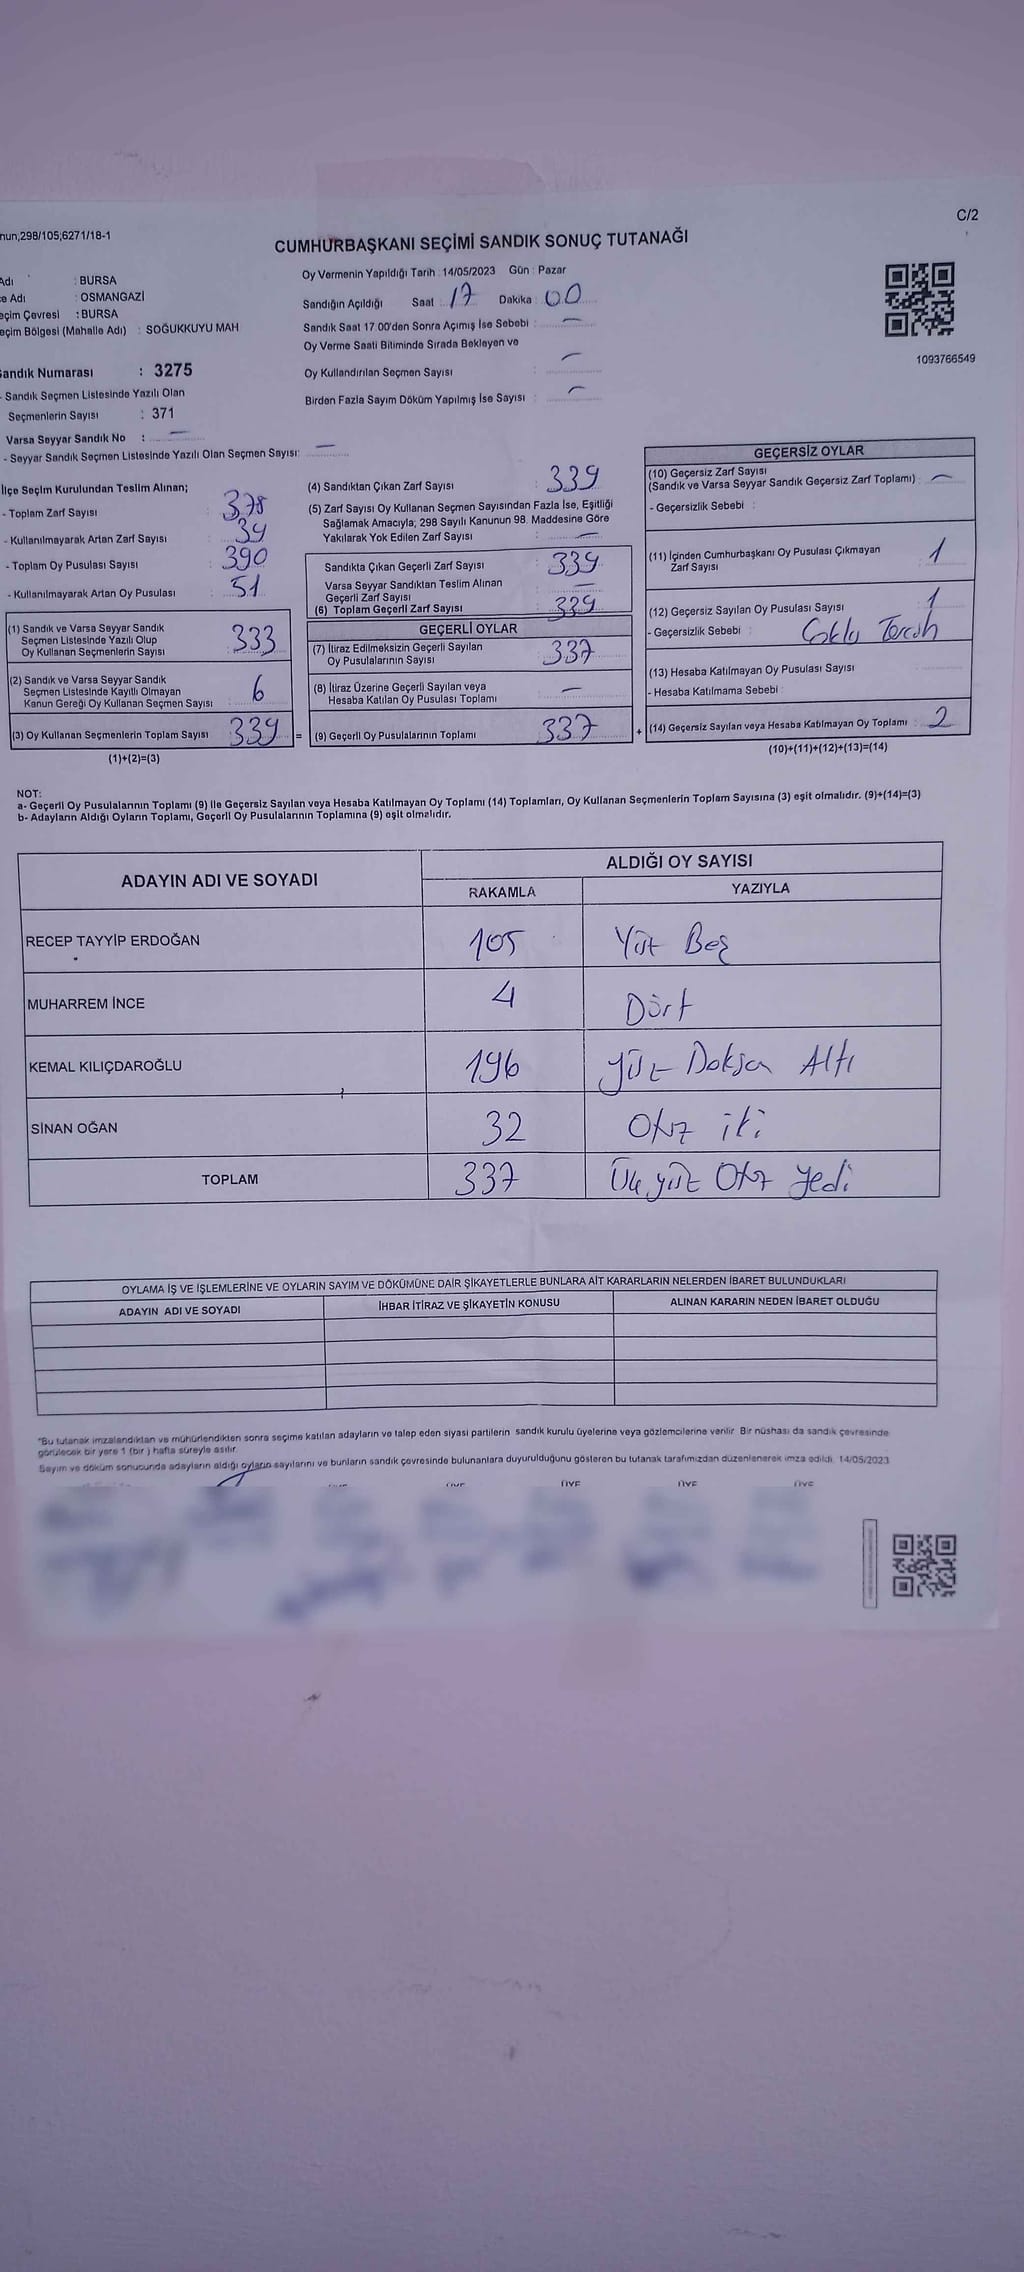 nun,298/105,6271/18-1
C/2
CUMHURBAŞKANI SEÇİMİ SANDIK SONUÇ TUTANAĞI
Adı : BURSA
e Adı : OSMANGAZİ
eçim Çevresi : BURSA
eçim Bölgesi (Mahalle Adı) : SOĞUKKUYU MAH
Oy Vermenin Yapıldığı Tarih : 14/05/2023 Gün : Pazar
Sandığın Açıldığı Saat : 17 Dakika : 00
Sandık Saat 17.00'den Sonra Açımış İse Sebebi :
Oy Verme Saati Bitiminde Sırada Bekleyen ve
Oy Kullandırılan Seçmen Sayısı :
Birden Fazla Sayım Döküm Yapılmış İse Sayısı :
1093766549
Sandık Numarası : 3275
- Sandık Seçmen Listesinde Yazılı Olan
Seçmenlerin Sayısı : 371
Varsa Seyyar Sandık No :
- Seyyar Sandık Seçmen Listesinde Yazılı Olan Seçmen Sayısı:
İlçe Seçim Kurulundan Teslim Alınan;
- Toplam Zarf Sayısı : 378
- Kullanılmayarak Artan Zarf Sayısı : 39
- Toplam Oy Pusulası Sayısı : 390
- Kullanılmayarak Artan Oy Pusulası : 51
(1) Sandık ve Varsa Seyyar Sandık
Seçmen Listesinde Yazılı Olup
Oy Kullanan Seçmenlerin Sayısı 333
(2) Sandık ve Varsa Seyyar Sandık
Seçmen Listesinde Kayıtlı Olmayan
Kanun Gereği Oy Kullanan Seçmen Sayısı : 6
(3) Oy Kullanan Seçmenlerin Toplam Sayısı 339 =
(1)+(2)=(3)
(4) Sandıktan Çıkan Zarf Sayısı : 339
(5) Zarf Sayısı Oy Kullanan Seçmen Sayısından Fazla İse, Eşitliği
Sağlamak Amacıyla; 298 Sayılı Kanunun 98. Maddesine Göre
Yakılarak Yok Edilen Zarf Sayısı :
Sandıkta Çıkan Geçerli Zarf Sayısı : 339
Varsa Seyyar Sandıktan Teslim Alınan
Geçerli Zarf Sayısı
(6) Toplam Geçerli Zarf Sayısı : 339
GEÇERLİ OYLAR
(7) İtiraz Edilmeksizin Geçerli Sayılan
Oy Pusulalarının Sayısı 337
(8) İtiraz Üzerine Geçerli Sayılan veya
Hesaba Katılan Oy Pusulası Toplamı
(9) Geçerli Oy Pusulalarının Toplamı 337 +
GEÇERSİZ OYLAR
(10) Geçersiz Zarf Sayısı
(Sandık ve Varsa Seyyar Sandık Geçersiz Zarf Toplamı) :
- Geçersizlik Sebebi :
(11) İçinden Cumhurbaşkanı Oy Pusulası Çıkmayan
Zarf Sayısı 1
(12) Geçersiz Sayılan Oy Pusulası Sayısı 1
- Geçersizlik Sebebi : Çoklu Tercih
(13) Hesaba Katılmayan Oy Pusulası Sayısı
- Hesaba Katılmama Sebebi :
(14) Geçersiz Sayılan veya Hesaba Katılmayan Oy Toplamı : 2
(10)+(11)+(12)+(13)=(14)
NOT:
a- Geçerli Oy Pusulalarının Toplamı (9) ile Geçersiz Sayılan veya Hesaba Katılmayan Oy Toplamı (14) Toplamları, Oy Kullanan Seçmenlerin Toplam Sayısına (3) eşit olmalıdır. (9)+(14)=(3)
b- Adayların Aldığı Oyların Toplamı, Geçerli Oy Pusulalarının Toplamına (9) eşit olmalıdır.
ADAYIN ADI VE SOYADI ALDIĞI OY SAYISI
RAKAMLA YAZIYLA
RECEP TAYYİP ERDOĞAN 105 Yüz Beş
MUHARREM İNCE 4 Dört
KEMAL KILIÇDAROĞLU 196 Yüz Doksan Altı
SİNAN OĞAN 32 Otuz iki
TOPLAM 337 Üçyüz Otuz Yedi
OYLAMA İŞ VE İŞLEMLERİNE VE OYLARIN SAYIM VE DÖKÜMÜNE DAİR ŞİKAYETLERLE BUNLARA AİT KARARLARIN NELERDEN İBARET BULUNDUKLARI
ADAYIN ADI VE SOYADI İHBAR İTİRAZ VE ŞİKAYETİN KONUSU ALINAN KARARIN NEDEN İBARET OLDUĞU
"Bu tutanak imzalandıktan ve mühürlendikten sonra seçime katılan adayların ve talep eden siyasi partilerin sandık kurulu üyelerine veya gözlemcilerine verilir. Bir nüshası da sandık çevresinde
görülecek bir yere 1 (bir ) hafta süreyle asılır.
Sayım ve döküm sonucunda adayların aldığı oyların sayılarını ve bunların sandık çevresinde bulunanlara duyurulduğunu gösteren bu tutanak tarafımızdan düzenlenerek imza edildi. 14/05/2023
ÜYE ÜYE ÜYE ÜYE ÜYE